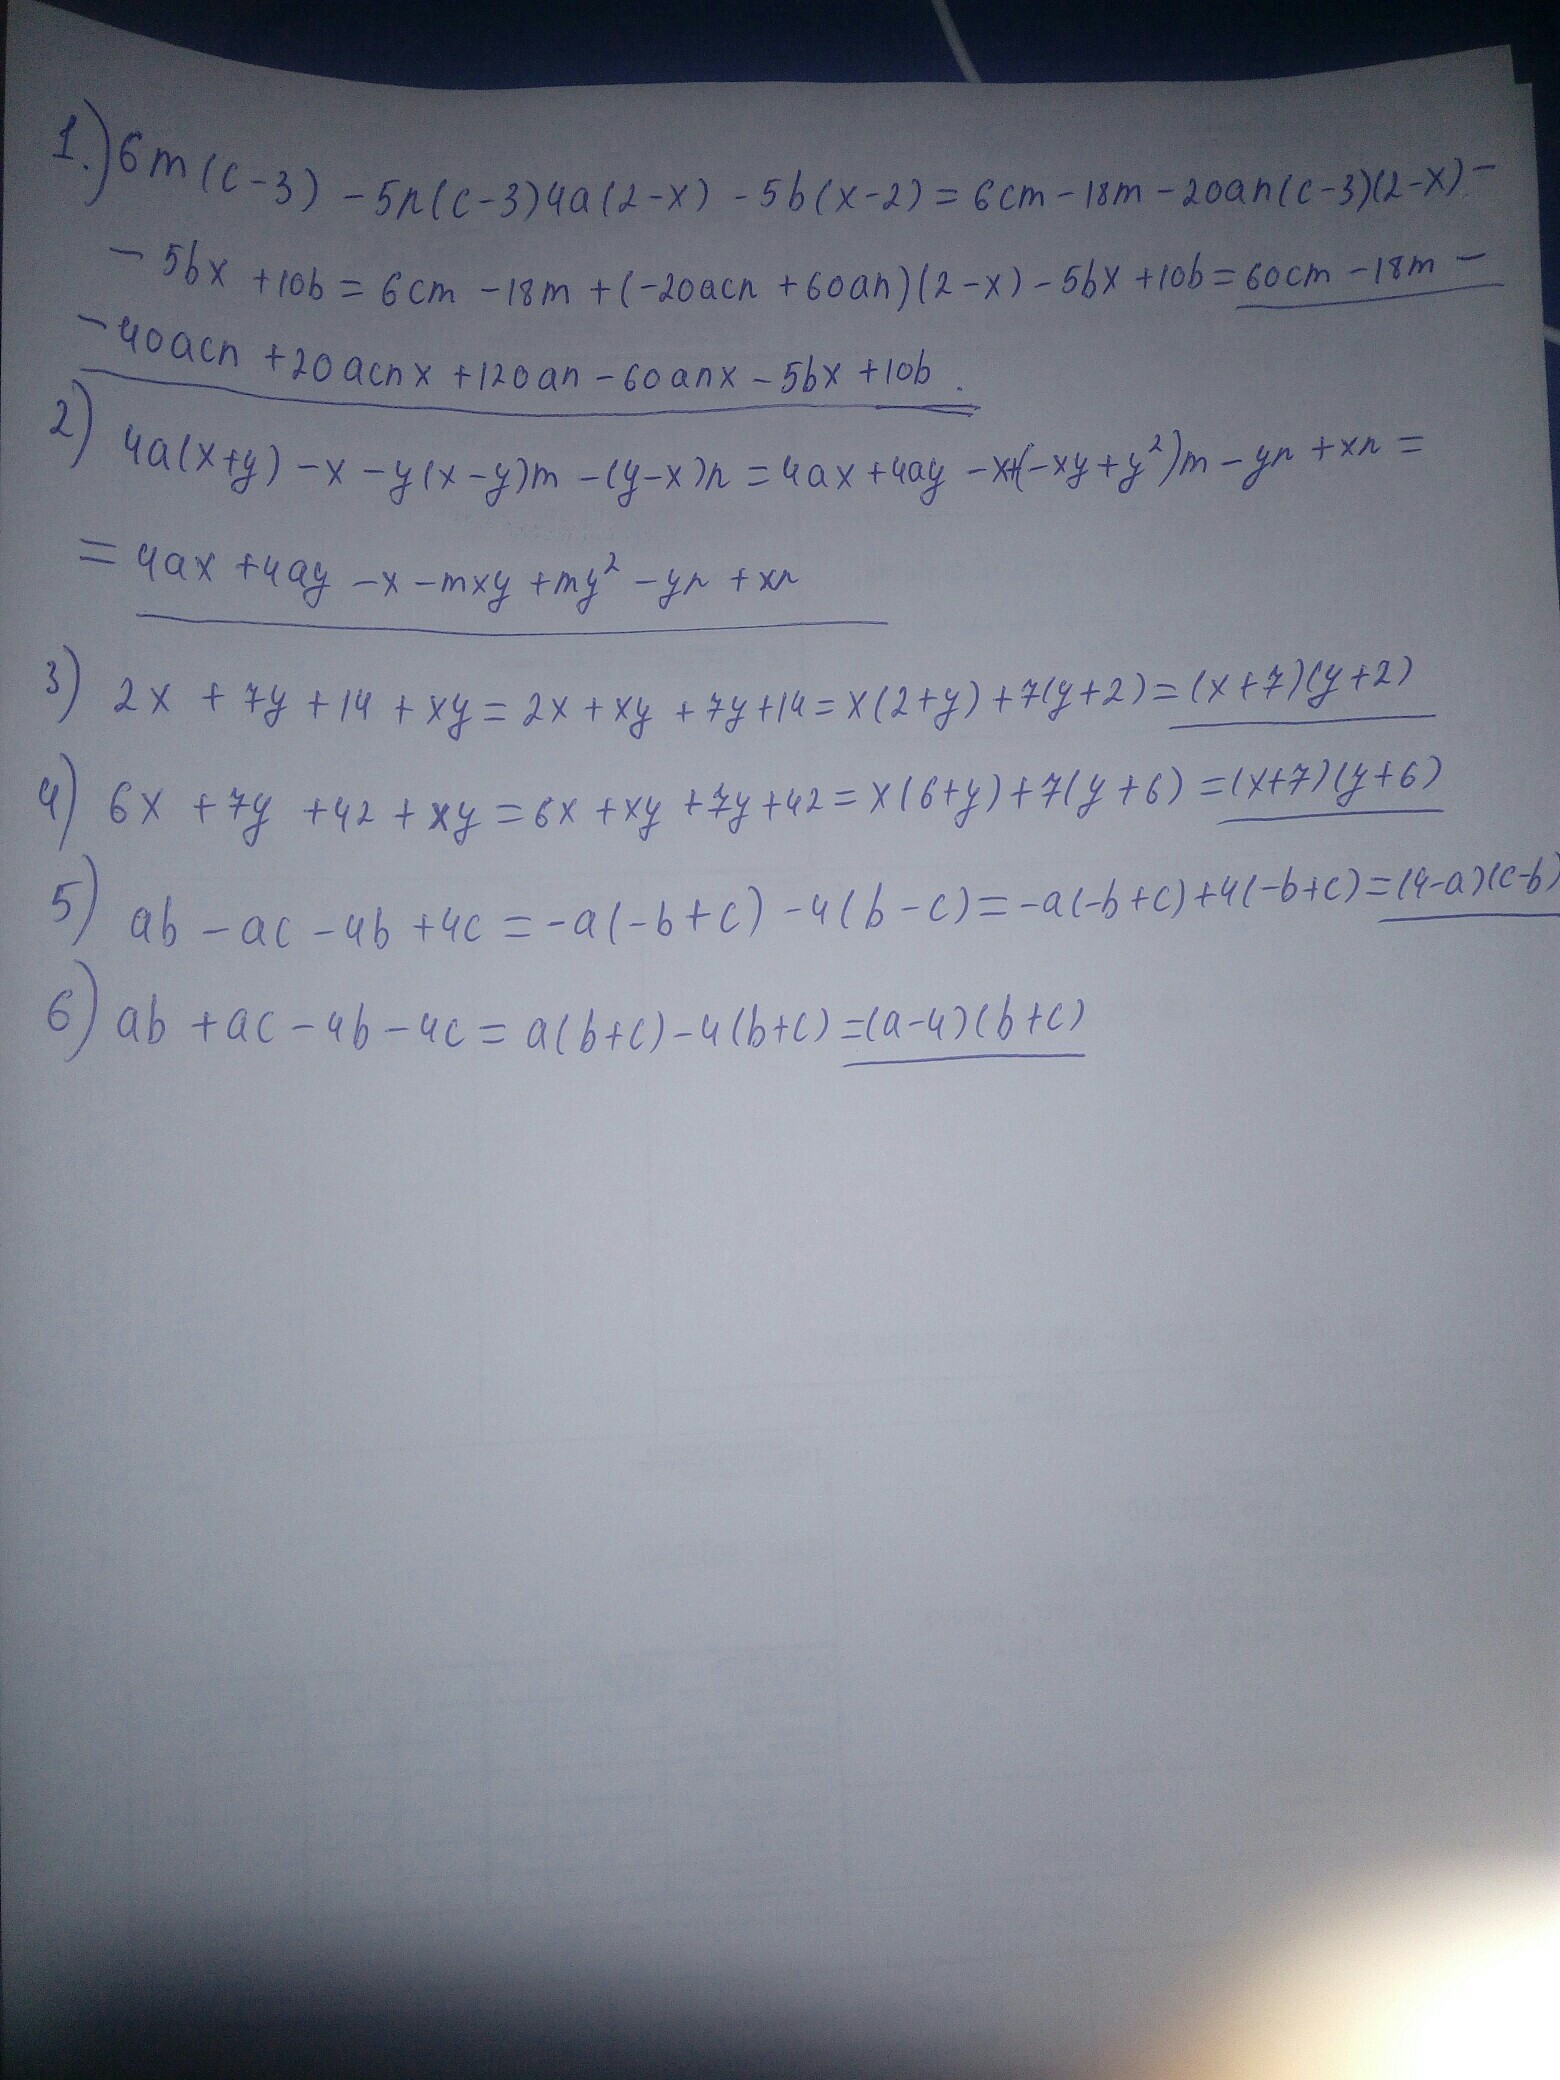 1.) 6m(c-3) - 5n(c-3)4a(2-x) - 5b(x-2) = 6cm - 18m - 20an(c-3)(2-x) -
- 5bx + 10b = 6cm - 18m + (-20acn + 60an)(2-x) - 5bx + 10b = 60cm - 18m -
- 40acn + 20acnx + 120an - 60anx - 5bx + 10b.
2) 4a(x+y) - x - y(x-y)m - (y-x)n = 4ax + 4ay - x + (-xy + y²)m - yn + xn =
= 4ax + 4ay - x - mxy + my² - yn + xn
3) 2x + 7y + 14 + xy = 2x + xy + 7y + 14 = x(2+y) + 7(y+2) = (x+7)(y+2)
4) 6x + 7y + 42 + xy = 6x + xy + 7y + 42 = x(6+y) + 7(y+6) = (x+7)(y+6)
5) ab - ac - 4b + 4c = -a(-b+c) - 4(b-c) = -a(-b+c) + 4(-b+c) = (4-a)(c-b)
6) ab + ac - 4b - 4c = a(b+c) - 4(b+c) = (a-4)(b+c)